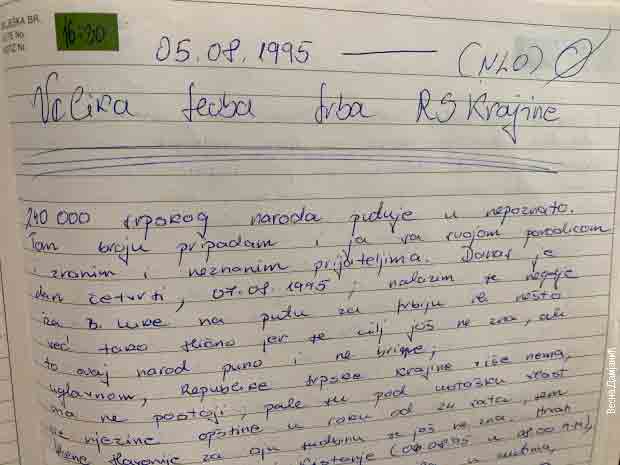 BILJEŠKA BR.
NOTE No.
NOTIZ Nr.
16:30
05.08.1995 (NLO)
Velika seoba srba RS Krajine
240 000 srpskog naroda putuje u nepoznato.
Tom broju pripadam i ja sa svojom porodicom
i znanim i neznanim prijateljima. Danas je
dan četvrti, 07.08.1995; nalazim se negdje
iza B. Luke na putu za srbiju ili nešto
već tako slično jer se cilj još ne zna, ali
to ovaj narod puno i ne brine;
uglavnom, Republike srpske Krajine više nema,
ona ne postoji, pale su pod ustašku vlast
sve njezine opštine u roku od 24 sata, sem
slavonije za čiju sudbinu se još ne zna.
(04.08.95 u
Весна Дамјанић